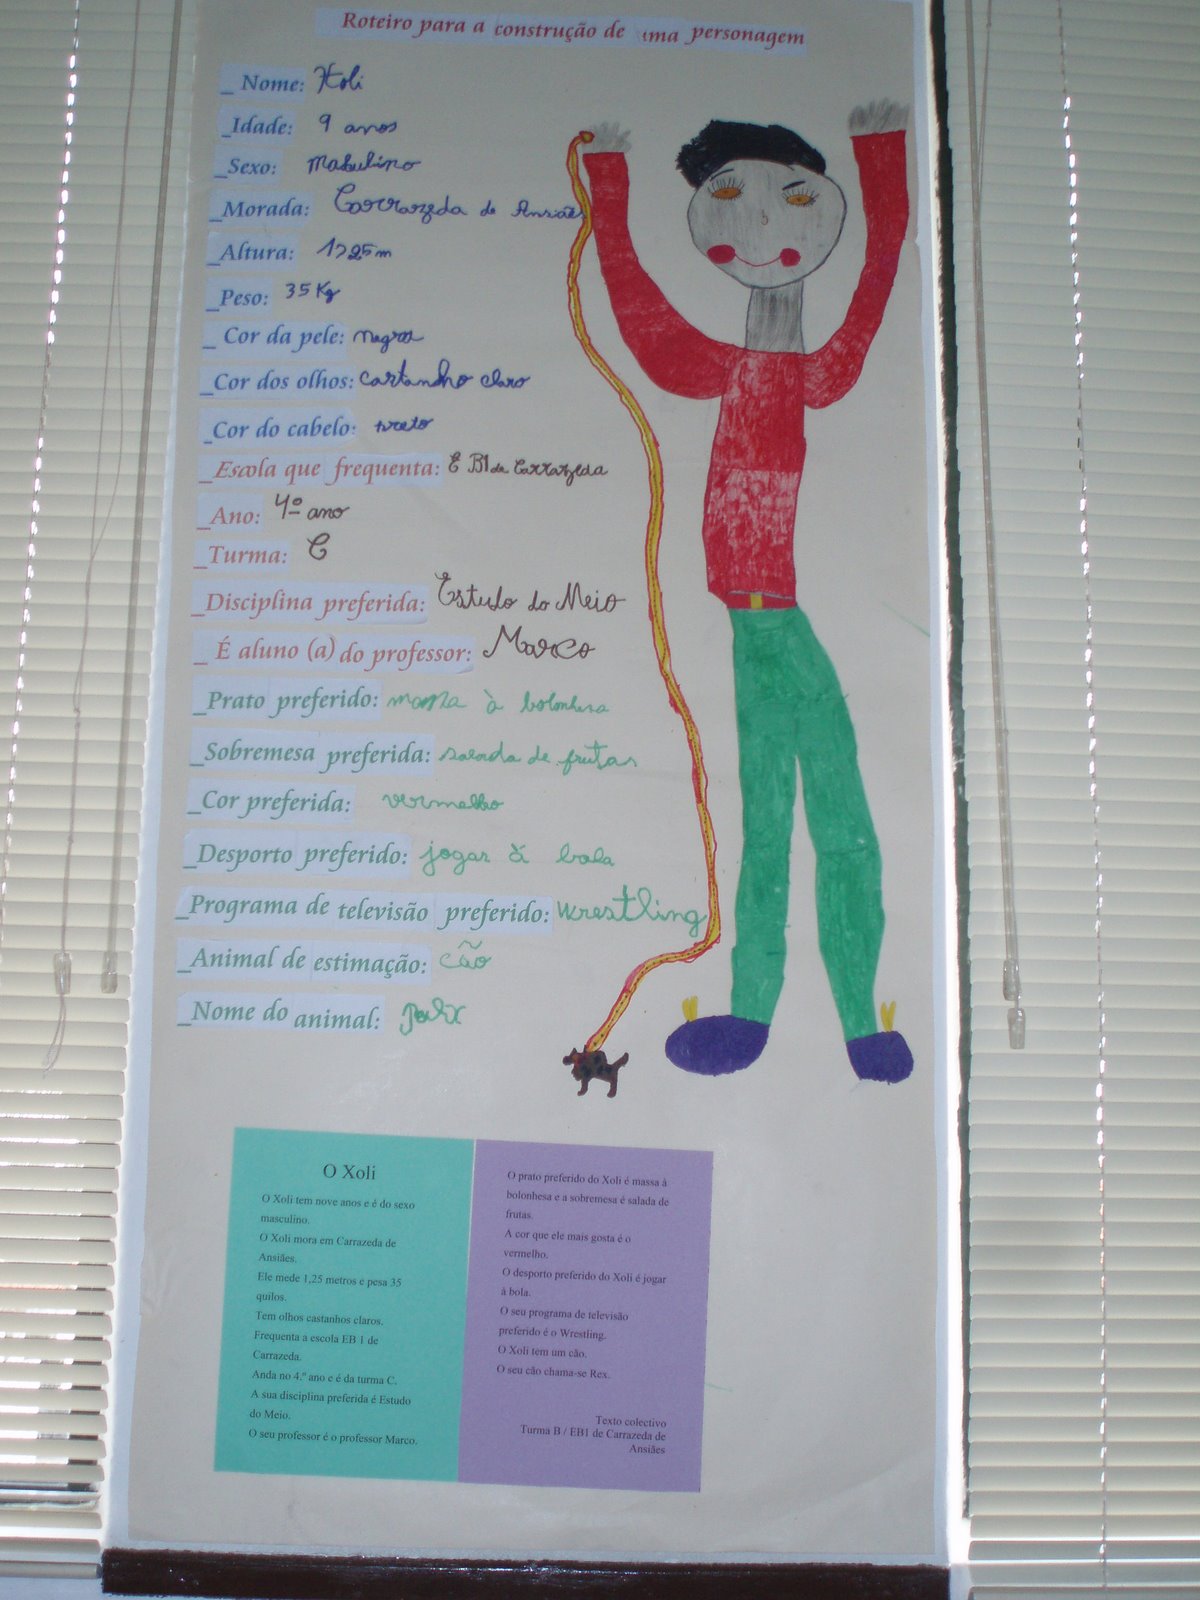 Roteiro para a construção de uma personagem
_ Nome: Xoli
_Idade: 9 anos
_Sexo: Masculino
_Morada: Carrazeda de Ansiães
_Altura: 1,25 m
_Peso: 35 Kg
_ Cor da pele: negra
_Cor dos olhos: castanho claro
_Cor do cabelo: preto
_Escola que frequenta: E B1 de Carrazeda
_Ano: 4º ano
_Turma: C
_Disciplina preferida: Estudo do Meio
_ É aluno (a) do professor: Marco
_Prato preferido: massa à bolonhesa
_Sobremesa preferida: salada de frutas
_Cor preferida: vermelho
_Desporto preferido: jogar à bola
_Programa de televisão preferido: Wrestling
_Animal de estimação: cão
_Nome do animal:
O Xoli
O Xoli tem nove anos e é do sexo
masculino.
O Xoli mora em Carrazeda de
Ansiães.
Ele mede 1,25 metros e pesa 35
quilos.
Tem olhos castanhos claros.
Frequenta a escola EB 1 de
Carrazeda.
Anda no 4.º ano e é da turma C.
A sua disciplina preferida é Estudo
do Meio.
O seu professor é o professor Marco.
O prato preferido do Xoli é massa à
bolonhesa e a sobremesa é salada de
frutas.
A cor que ele mais gosta é o
vermelho.
O desporto preferido do Xoli é jogar
à bola.
O seu programa de televisão
preferido é o Wrestling.
O Xoli tem um cão.
O seu cão chama-se Rex.
Texto colectivo
Turma B / EB1 de Carrazeda de
Ansiães